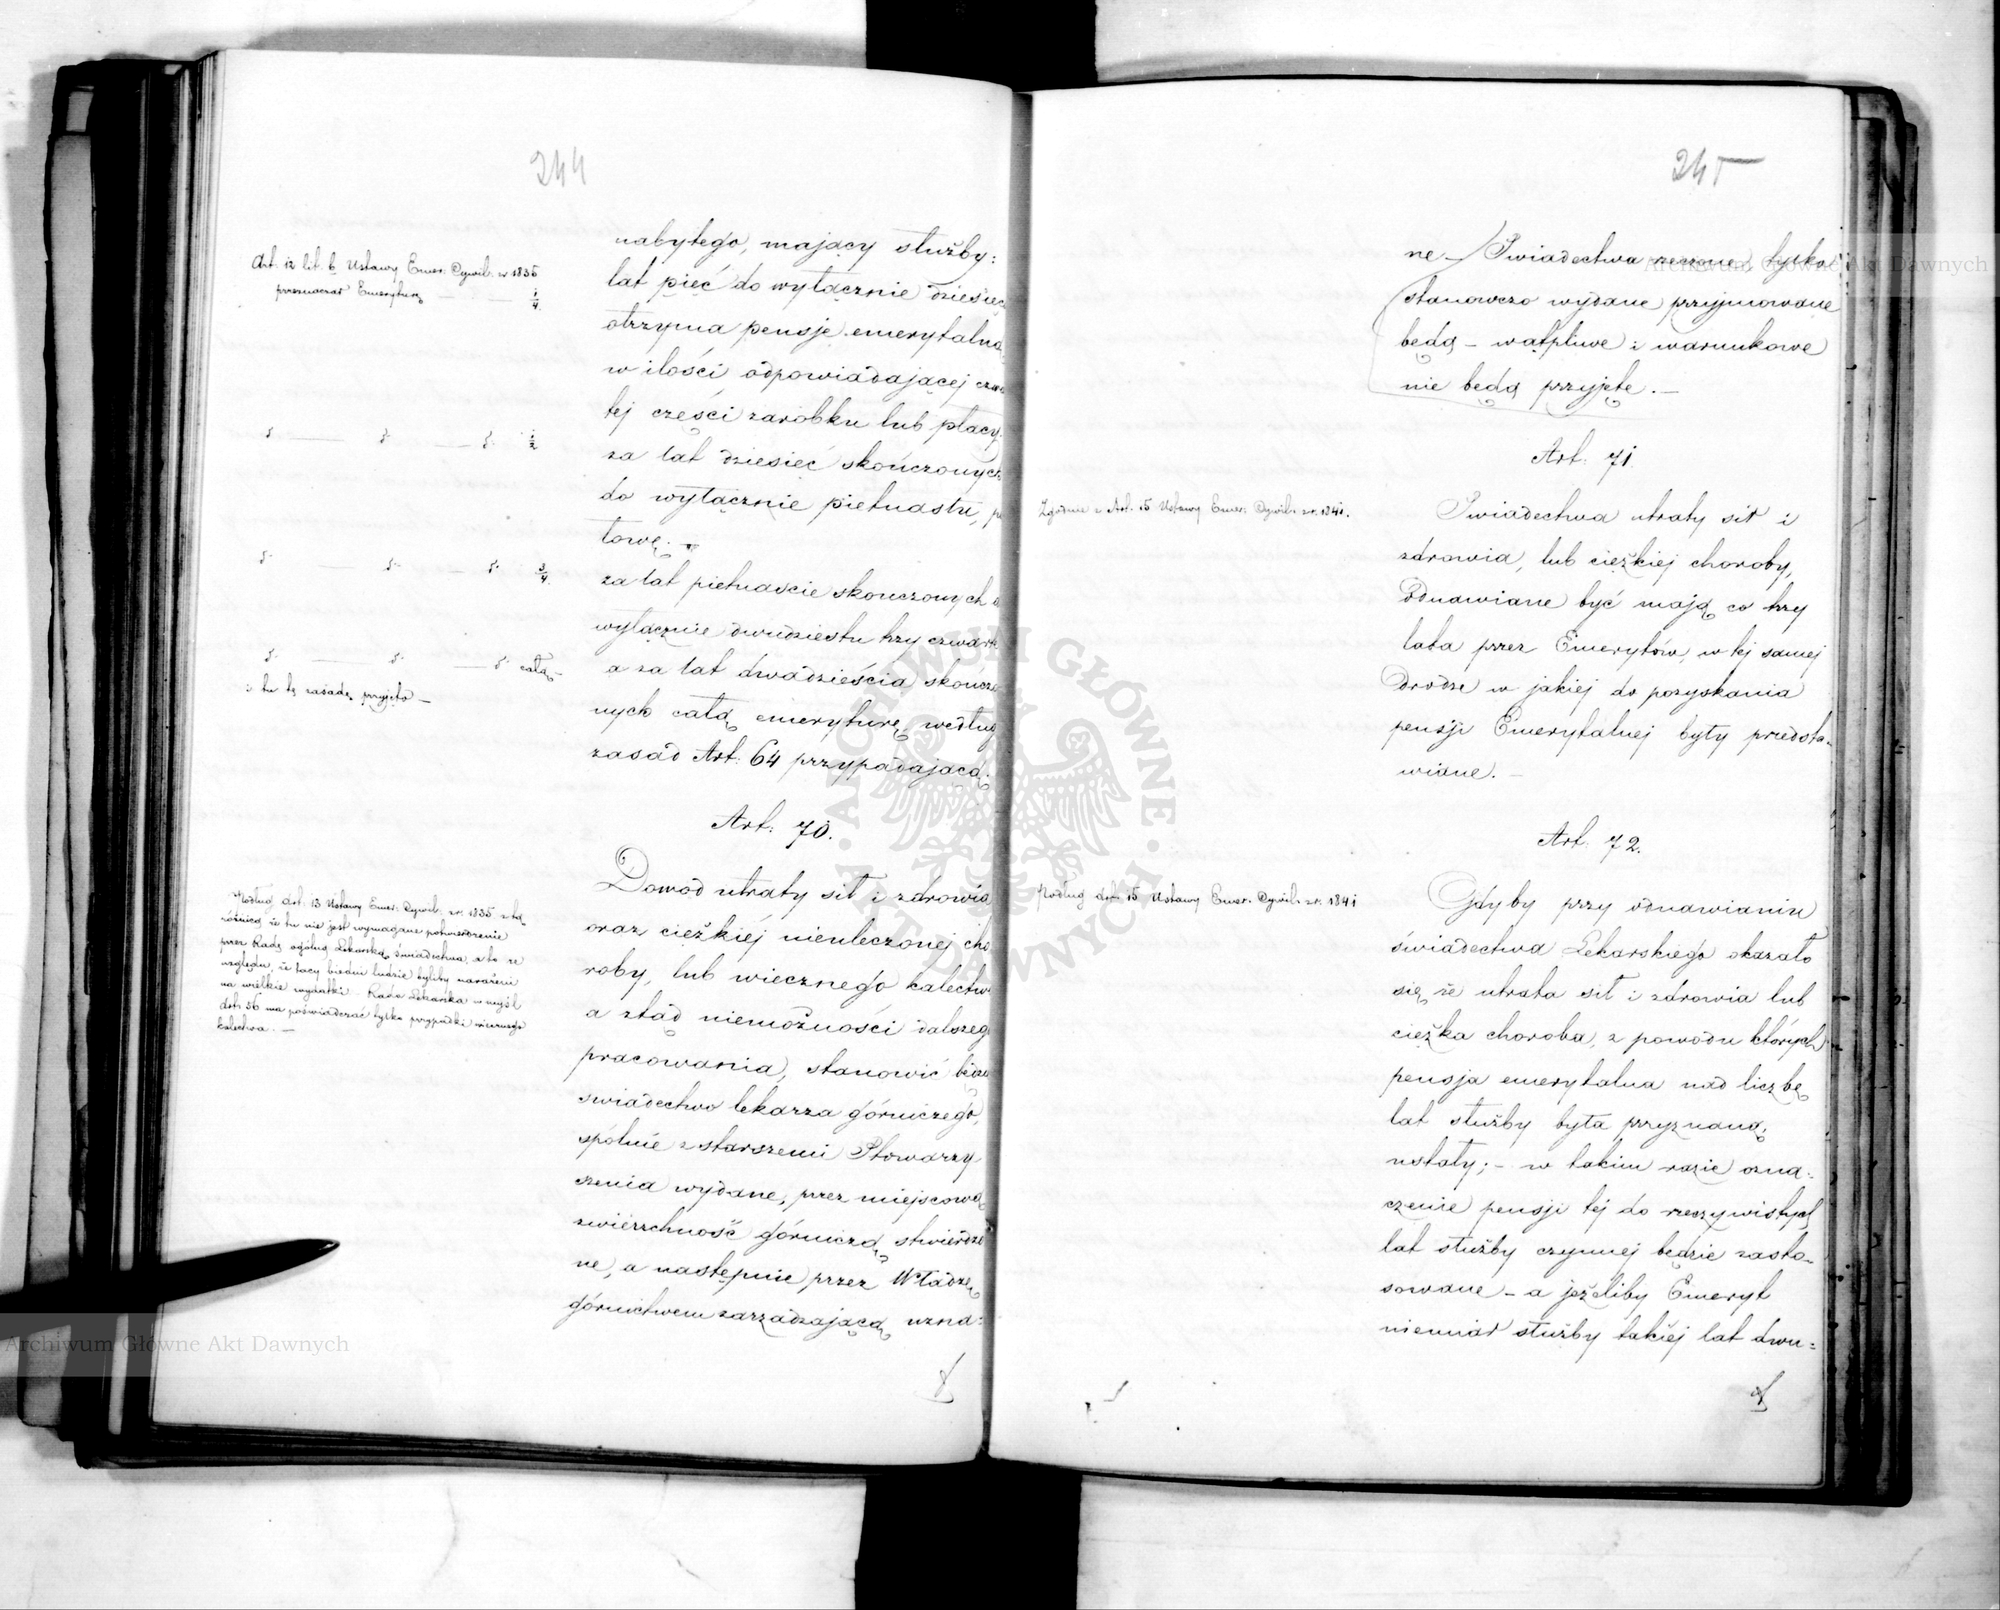 244
Art. 12 lit. b Ustawy Emer. Cywil. z r. 1835
przeznaczał Emeryturę — — 1/4.
d° — d° — d° 1/2
d° — d° — d° 3/4.
d° — d° — d° całą —
i tu tę zasadę przyjęto —
Podług Art. 13 Ustawy Emer. Cywil. z r. 1835 z tą
różnicą że tu nie jest wymagane potwierdzenie
przez Radę ogólną Lekarską świadectwa, a to ze
względu, że tacy biedni ludzie byliby narażeni
na wielkie wydatki — Rada Lekarska w myśl
Art. 56 ma poświadczać tylko przypadki wiecznego
kalectwa. —
nabytego, mający służby:
lat pięć do wyłącznie dziesięc
otrzyma pensję emerytalną
w ilości odpowiadającej czwa
tej części zarobku lub płacy.
za lat dziesięć skończonych
do wyłącznie piętnastu, po
łowę. —
za lat piętnaście skończonych d
wyłącznie dwudziestu trzy czwart
a za lat dwadzieścia skończo
nych całą emeryturę, według
zasad Art. 64 przypadającą.
Art. 70.
Dowód utraty sił i zdrowia
oraz ciężkiej nieuleczonej cho
roby, lub wiecznego kalectw
a ztąd niemożności dalszeg
pracowania, stanowić będzi
swiadectwo lekarza górniczego,
spólnie z starszemi Stowarzy
szenia wydane, przez miejscową
zwierzchność górniczą stwierdzo
ne, a następnie przez Władzę
górnictwem zarządzającą uzna=
245
ne — Swiadectwa rzeczone, tylko
stanowczo wydane przyjmowane
będą — wątpliwe i warunkowe
nie będą przyjęte. —
Art. 71.
Zgodnie z Art. 15 Ustawy Emer. Cywil. z r. 1841.
Swiadectwa utraty sił i
zdrowia, lub ciężkiej choroby,
odnawiane być mają co trzy
lata przez Emerytów, w tej samej
drodze w jakiej do pozyskania
pensji Emerytalnej były przedsta=
wiane. —
Art. 72.
Podług Art. 15 Ustawy Emer. Cywil. z r. 1841
Gdyby przy odnawianiu
świadectwa Lekarskiego okazało
się że utrata sił i zdrowia lub
ciężka choroba, z powodu których
pensja emerytalna nad liczbę
lat służby była przyznaną,
ustały; — w takim razie ozna=
czenie pensji tej do rzeczywistych
lat służby czynnej będzie zasto=
sowane — a jeżeliby Emeryt
niemiał służby takiej lat dwu=
ARCHIWUM GŁÓWNE AKT DAWNYCH
Archiwum Główne Akt Dawnych
Archiwum Główne Akt Dawnych